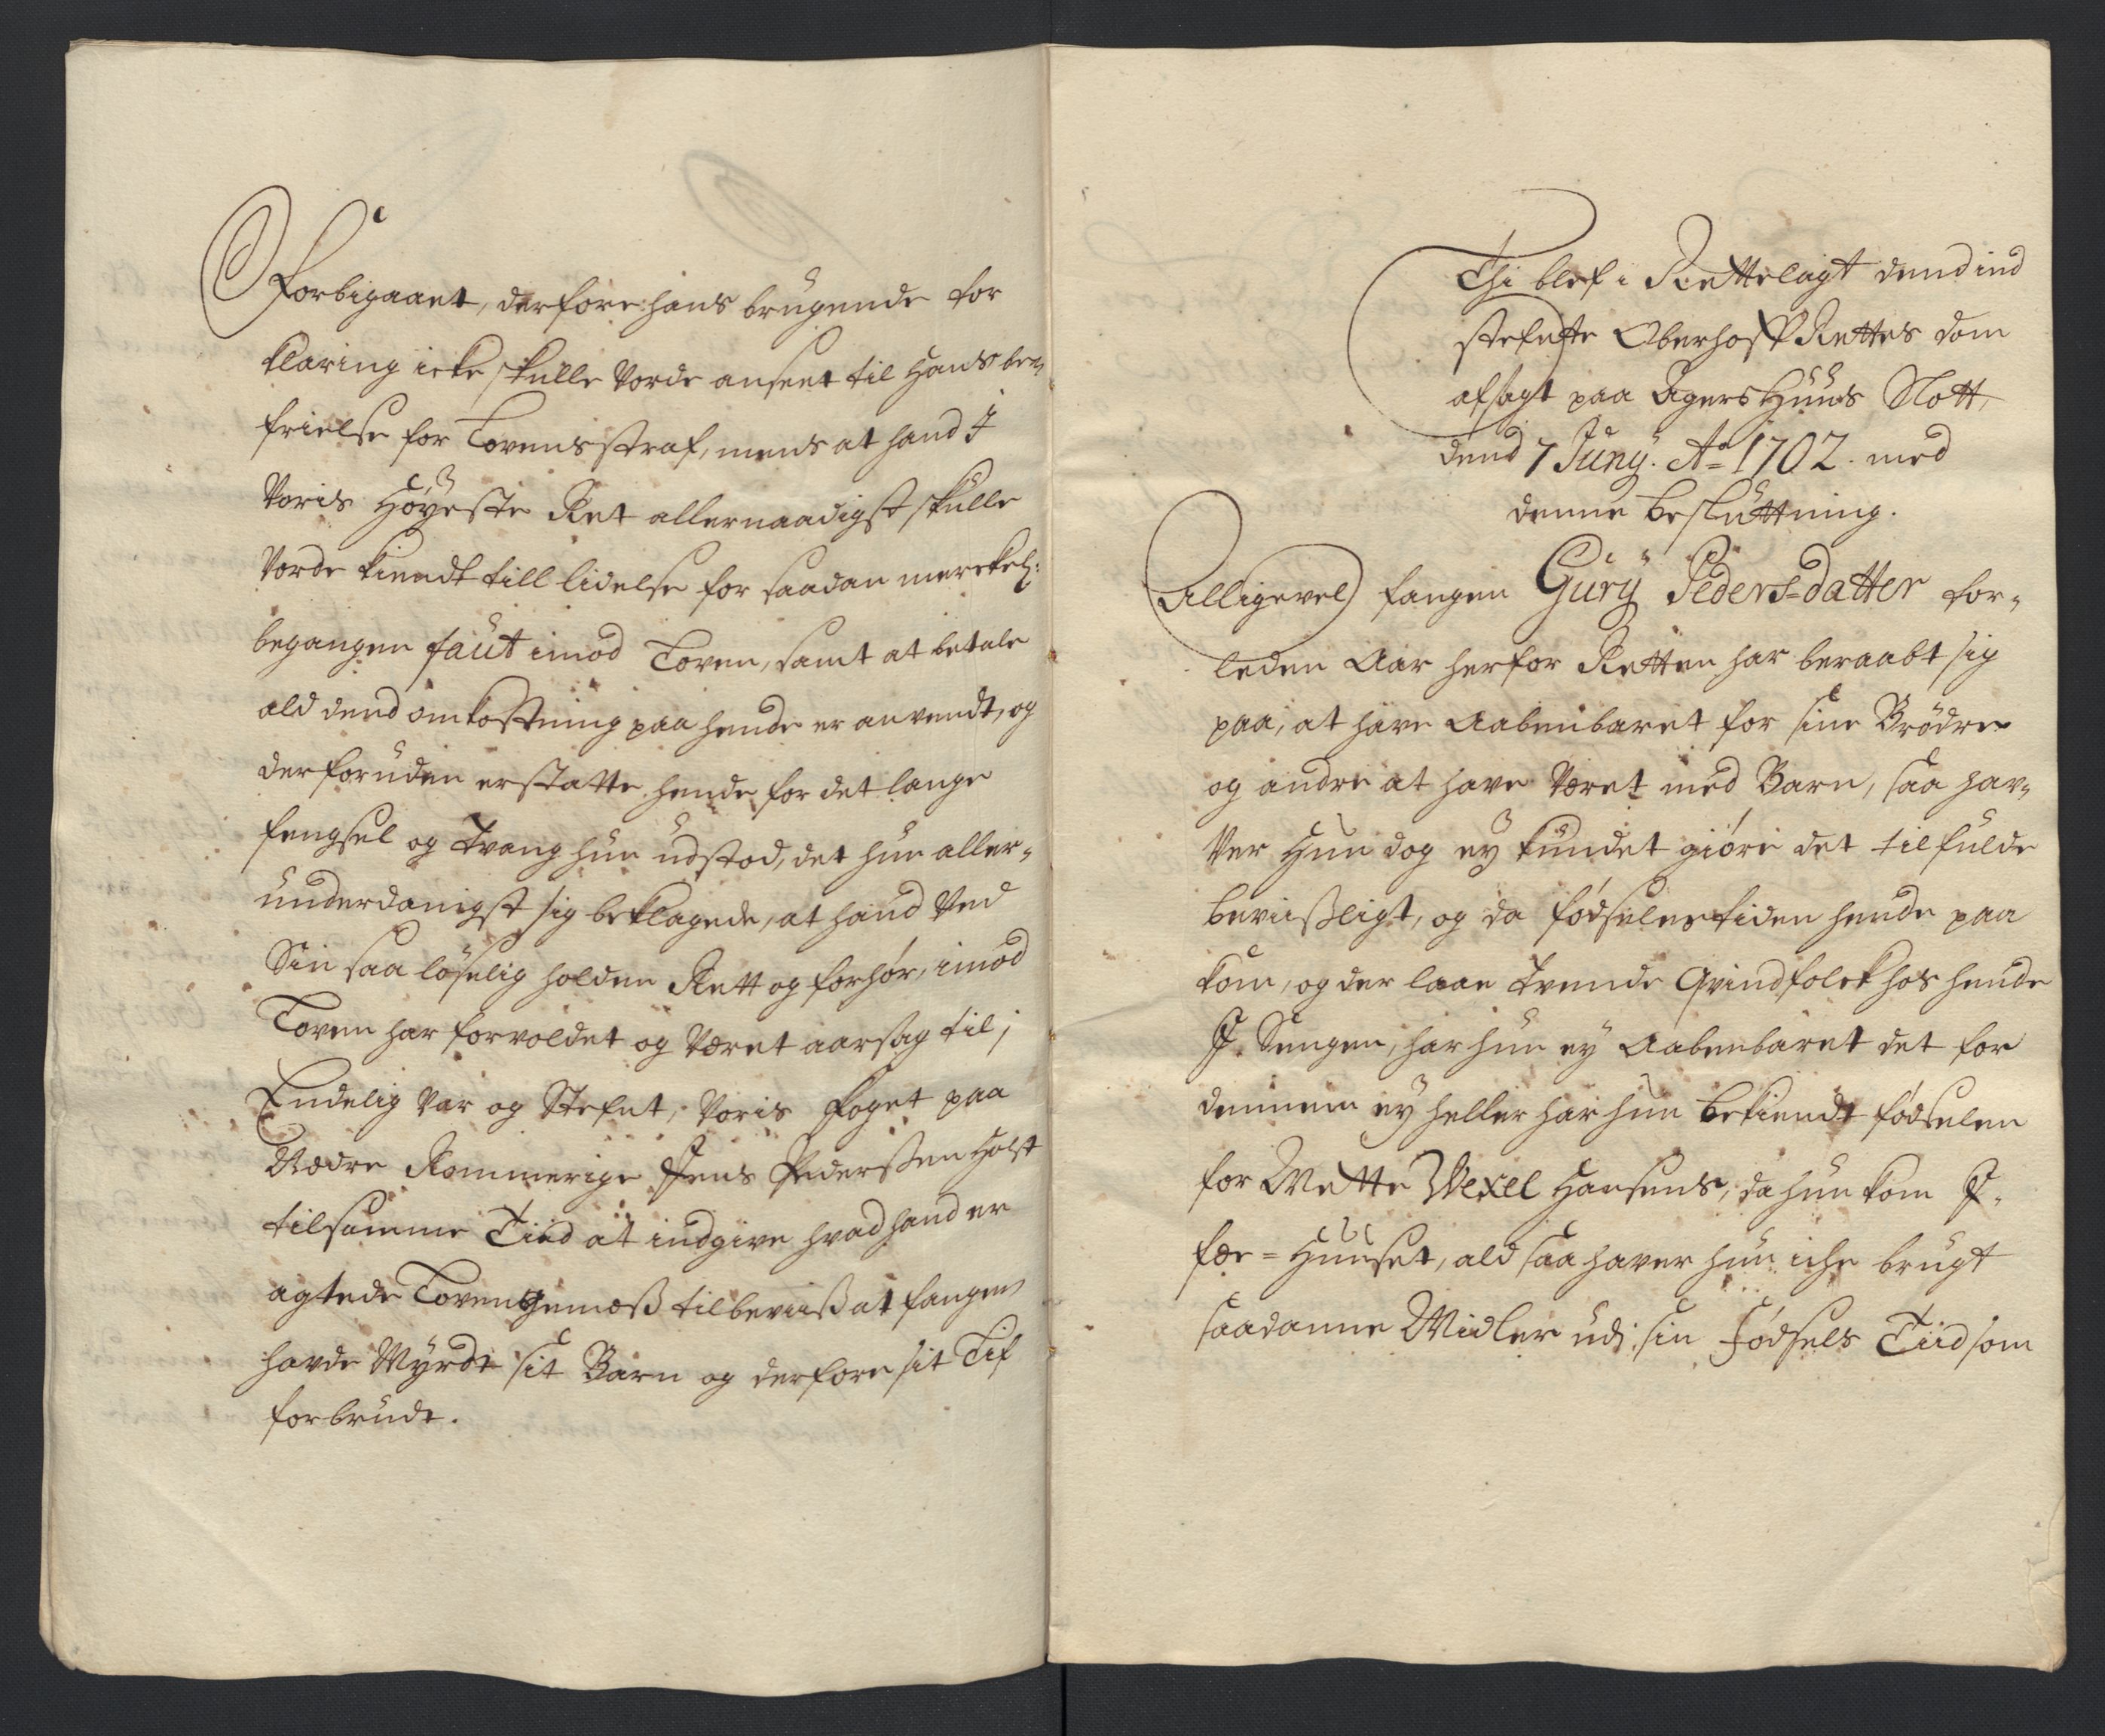 Forbigaaet, derfore hans brugende for
klaring icke skulle vorde anseet til Hans be-
frielse for Lovens straf, mens at hand I
voris Høyeste Ret allernaadigst skulle
vorde kiendt till lidelse for saadan merckel:
begangen faut imod Loven, samt at betale
ald dend omkostning paa hende er anvendt, og
derforuden erstatte hende for det lange
fengsel og tvang hun udstod, det hun aller-
underdanigst sig beklagede, at hand ved
Sin saa løselig holden Rett og forhør, imod
Loven har forvoldet og veret aarsag til;
Endelig var og Stefnt, voris foget paa
Nedre Rommerige Jens Pedersen Holst
til samme Tiid at indgive hvad hand er
agtede Loven gemæß til beviiß at fangen
havde Myrdt sit Barn og derfore sit Lif
forbrudt.
Thi blef i Rettelagt dend ind
stefnte Oberhoff Rettes dom
afsagt paa AgersHuus Slott,
dend 7 Juny. Ao 1702. med
denne beslutning.
Alligevel fangen Gury Peders=datter for-
leden Aar herfor Retten har beraabt sig
paa, at have Aabenbaret for sine Brødre
og andre at have veret med Barn, saa haf-
ver Hun dog ey kundet giøre det til fulde
beviißligt, og da fødselens tiden hende paa
kom, og der laae tvende Qvindfolck hos hende
I Sengen, har hun ey Aabenbaret det for
dennem ey heller har hun bekiendt fødselen
for Mette Wexel Hansens, da hun kom I
fæe=Huuset, ald saa haver hun iche brugt
saadanne Midler udi sin Fødsels Tiid som